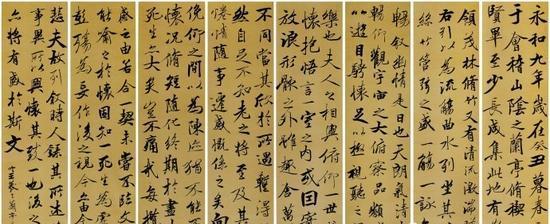 永和九年歲在癸丑暮春
于會稽山陰之蘭亭脩稧
賢畢至少長咸集此地有
領茂林脩竹又有清流激湍
右引以為流觴曲水列坐其
絲竹管弦之盛一觴一詠
暢敘幽情是日也天朗氣清
暢仰觀宇宙之大俯察品類
以遊目騁懷足以
樂也夫人之相與俯仰一世
懷抱悟言一室之內或因寄
放浪形骸之外雖趣舍萬
不同當其欣於所遇暫得
然自足不知老之將至及其
情隨事遷感慨係之矣向
俛仰之間以為陳迹猶不能不
懷況脩短隨化終期於盡
死生亦大矣豈不痛哉每
感之由若合一契未嘗不臨文
喻之於懷固知一死生為
彭殤為妄作後之視今亦由今
悲夫故列敘時人錄其所述
事異所以興懷其致一也後之
亦將有感於斯文